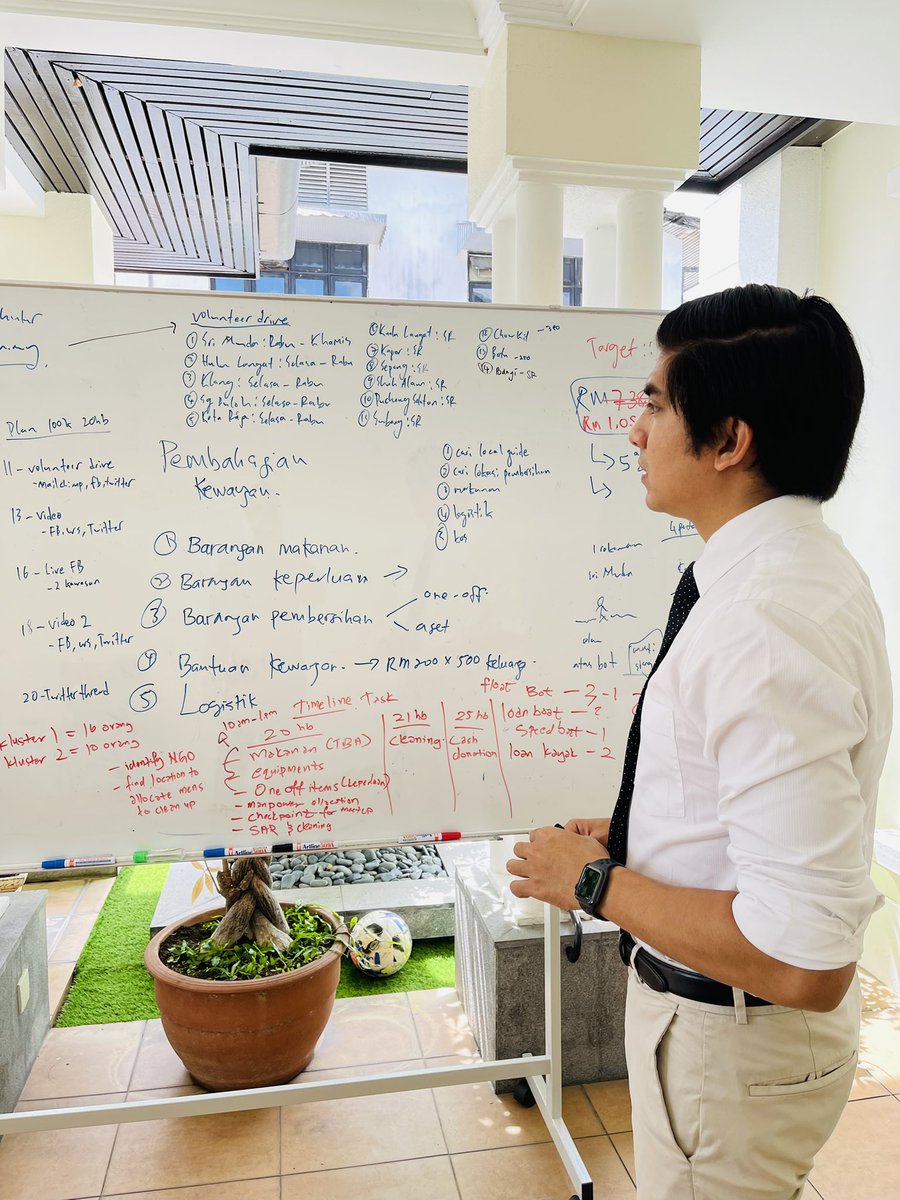 Volunteer drive
① Sri Muda: Rabu - Khamis
② Hulu Langat: Selasa - Rabu
③ Klang: Selasa - Rabu
④ Sg. Buloh: Selasa - Rabu
⑤ Kota Raja: Selasa - Rabu
⑥ Kuala Langat: SR
⑦ Kapar: SR
⑧ Sepang: SR
⑨ Shah Alam: SR
⑩ Puchong Selatan: SR
⑪ Subang: SR
⑫ Chow Kit
⑭ Bangi - SR
Target:
RM
RM 1,05
Plan 100k 20hb
11 - volunteer drive
- mailchimp, fb, twitter
13 - video
- FB, ws, Twitter
16 - Live FB
- 2 kawasan
18 - video 2
- FB, ws, Twitter
20 - Twitter thread
Pembahagian
Kewangan.
① Barangan makanan.
② Barangan keperluan →
③ Barangan pembersihan
one-off
aset
④ Bantuan kewangan. → RM200 x 500 keluarga.
⑤ Logistik
① cari local guide
② cari lokasi pembersihan
③ makanan
④ logistik
⑤ kos
1 rakaman
Sri Muda
atas bot
kluster 1 = 16 orang
kluster 2 = 10 orang
- identify NGO
- find location to
allocate mens
to clean up
Timeline Task
10am-1am
20 hb
Makanan (TBA)
equipments
- One off items (keperluan)
- manpower allocation
- checkpoint for meetup
- SAR & cleaning
21 hb
cleaning
25 hb
Cash
donation
float Bot - 3, - 1
loan boat - ?
Speed boat - 1
loan kayak - 2
Artline